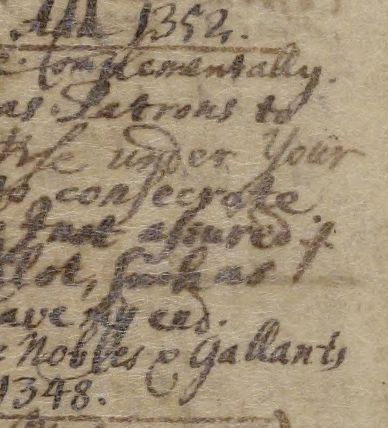 Añ 1352.
Complementally.
as Patrons to
under Your
consecrate
I not assured
lot, such as
ave my end.
Nobles & Gallants
1348.